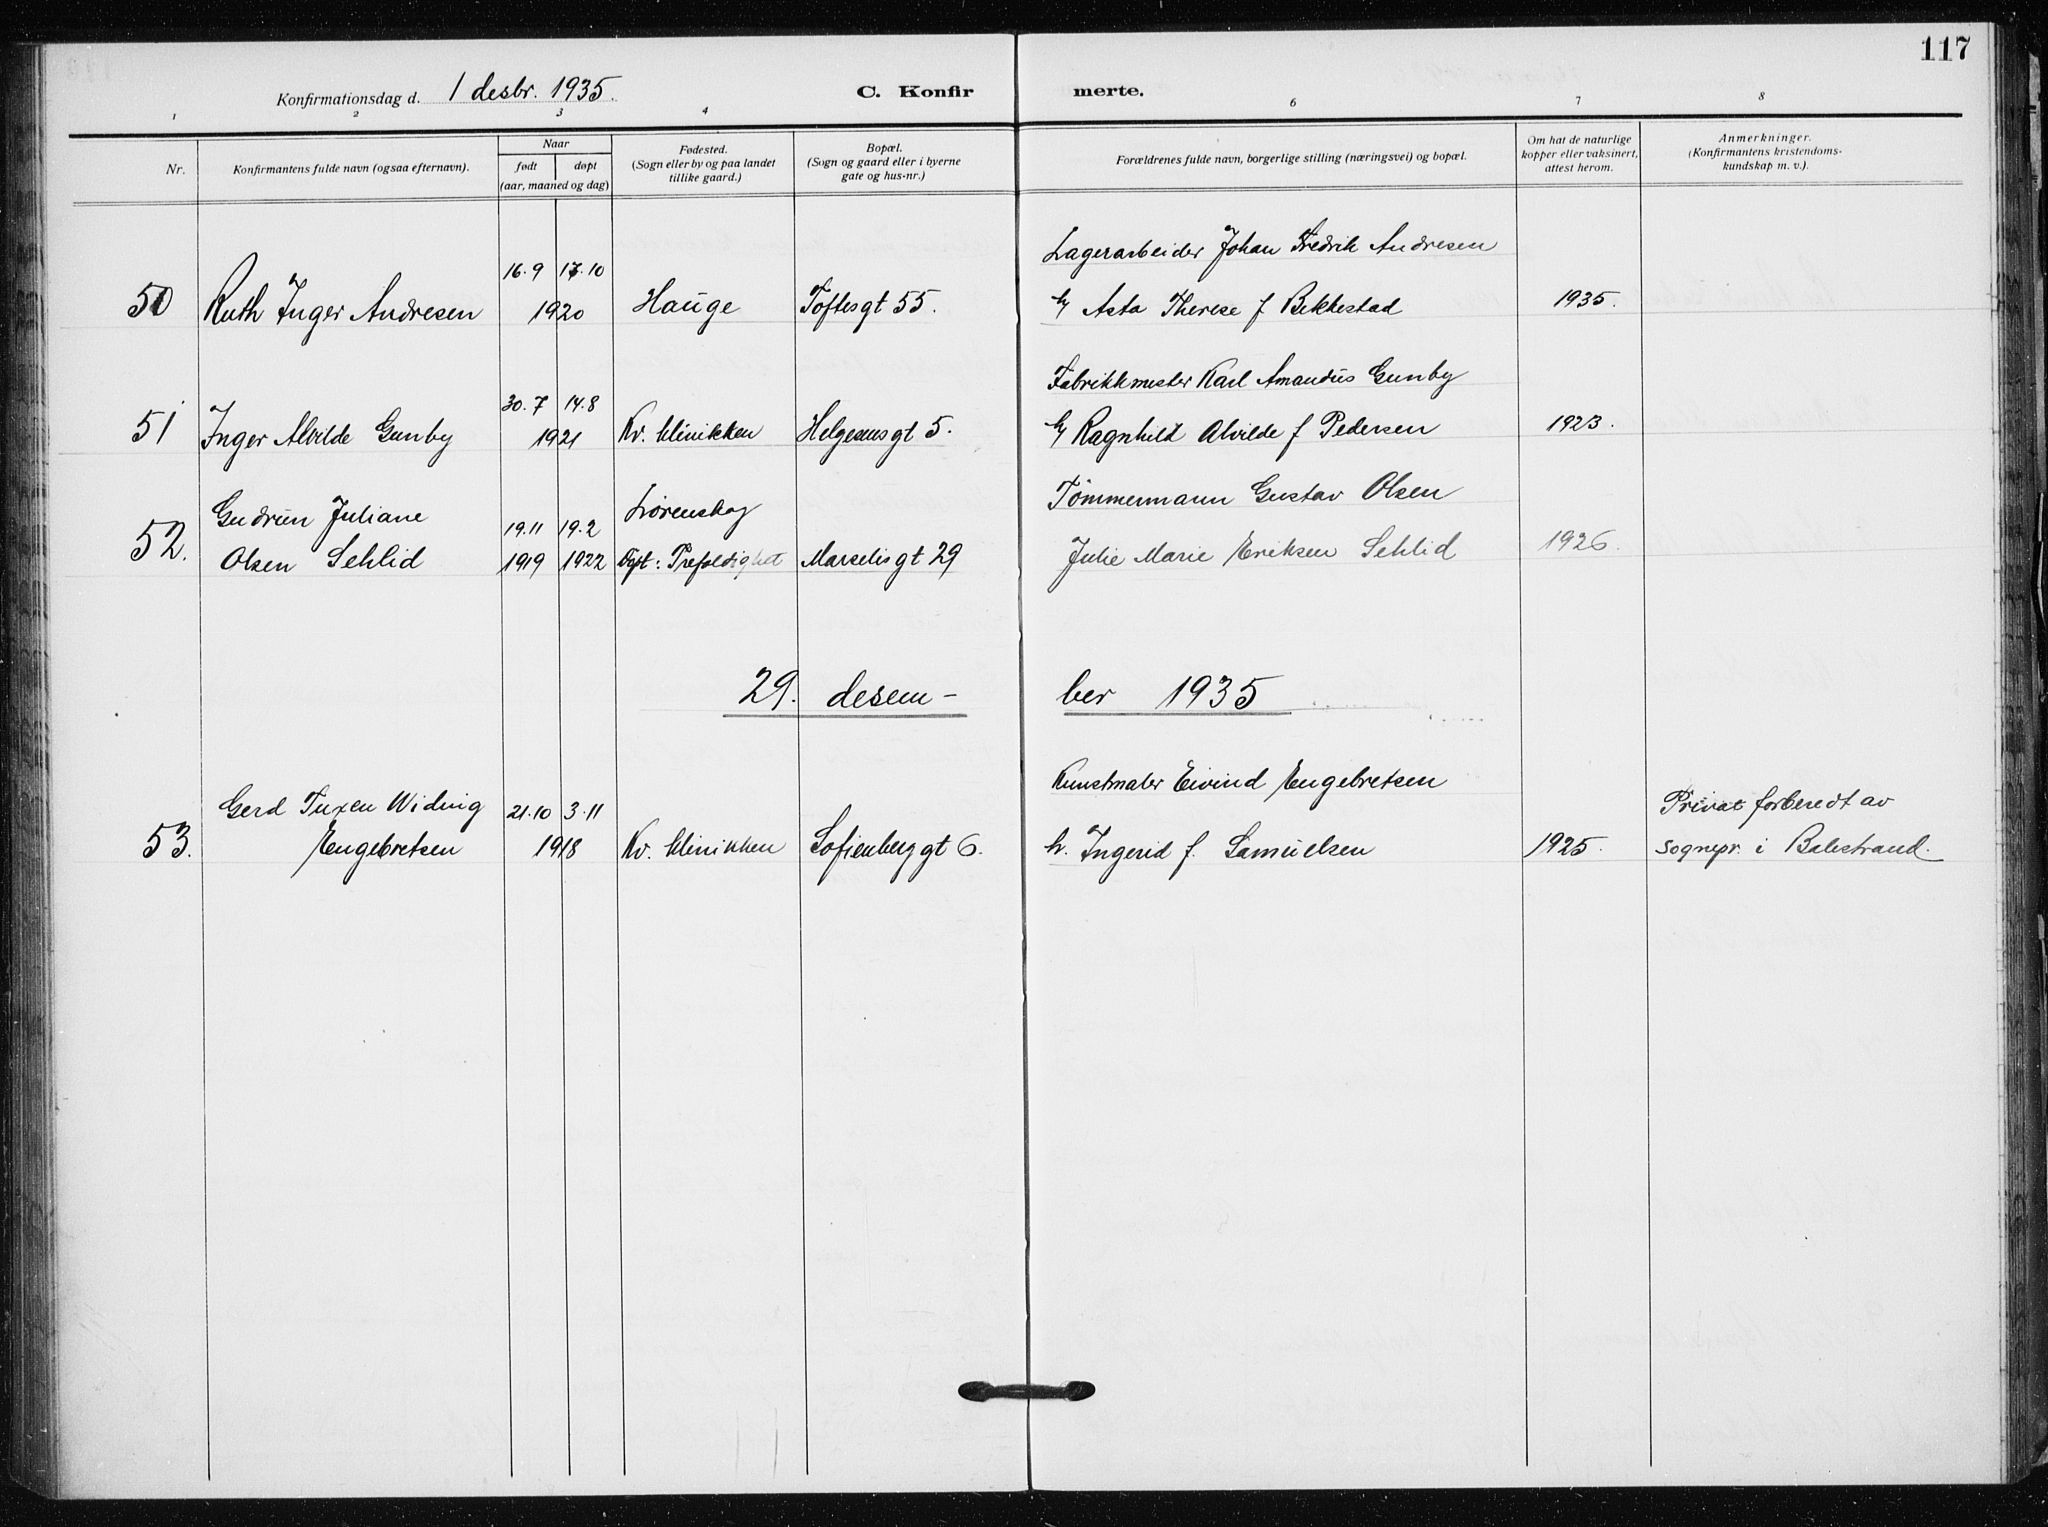 117
Konfirmationsdag d. 1 desbr. 1935. C. Konfir merte.
1 2 3 4 6 7 8
Nr.
Konfirmantens fulde navn (ogsaa efternavn).
Naar
født døpt
(aar, maaned og dag)
Fødested.
(Sogn eller by og paa landet
tillike gaard.)
Bopæl.
(Sogn og gaard eller i byerne
gate og hus-nr.)
Forældrenes fulde navn, borgerlige stilling (næringsvei) og bopæl.
Om hat de naturlige
kopper eller vaksinert,
attest herom.
Anmerkninger.
(Konfirmantens kristendoms-
kundskap m. v.).
Lagerarbeider Johan Fredrik Andresen
16.9 17.10
50 Ruth Inger Andresen 1920 Hauge Toftesgt 55. Asta Therese f Bekkestad 1935.
Fabrikkmester Karl Amandus Gunby
30.7 14.8
51 Inger Alvilde Gunby 1921 Kv. klinikken Helgesensgt 5. Ragnhild Alvilde f Pedersen 1923.
Gudrun Juliane 19.11 19.2 Lørenskog Tømmermann Gustav Olsen
52. Olsen Sehlid 1919 1922 Døpt: Trefoldighet Marselisgt 29 Julie Marie Eriksen Sehlid 1926.
29. desem- ber 1935
Kunstmaler Eivind Engebretsen
Gerd Tuxen Widing 21.10 3.11 Privat forberedt av
53. Engebretsen 1918 Kv. klinikken Sofienberggt 6. h. Ingerid f. Samuelsen 1925. sognepr. i Balestrand.